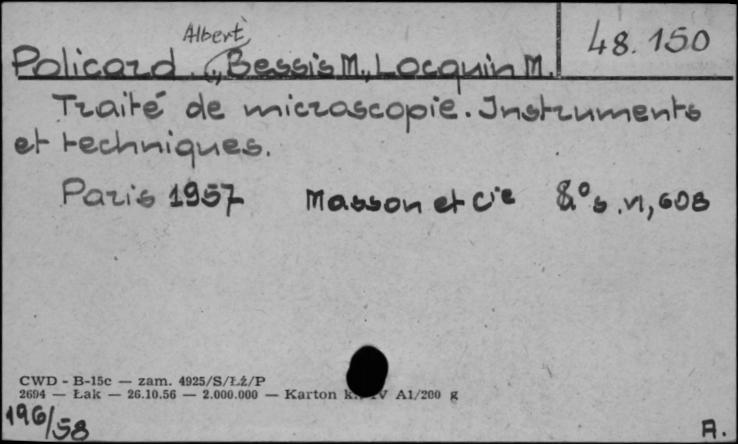 Albert
48.150
Policard., Bessis M., Locquin M.
Traité de microscopie. Instruments
et techniques.
Paris 1957 Masson et Cie 8° s. VI, 608
CWD - B-15c — zam. 4925/S/Łź/P
2694 — Łak — 26.10.56 — 2.000.000 — Karton k. IV A1/200 g
196/58
A.